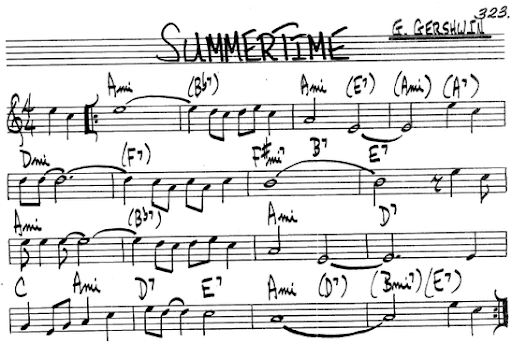 323.
SUMMERTIME G. GERSHWIN
4/4 Ami (Bb7) Ami (E7) (Ami) (A7)
Dmi (F7) F#mi7 B7 E7
Ami (Bb7) Ami D7
C Ami D7 E7 Ami (D7) (Bmi7) (E7)